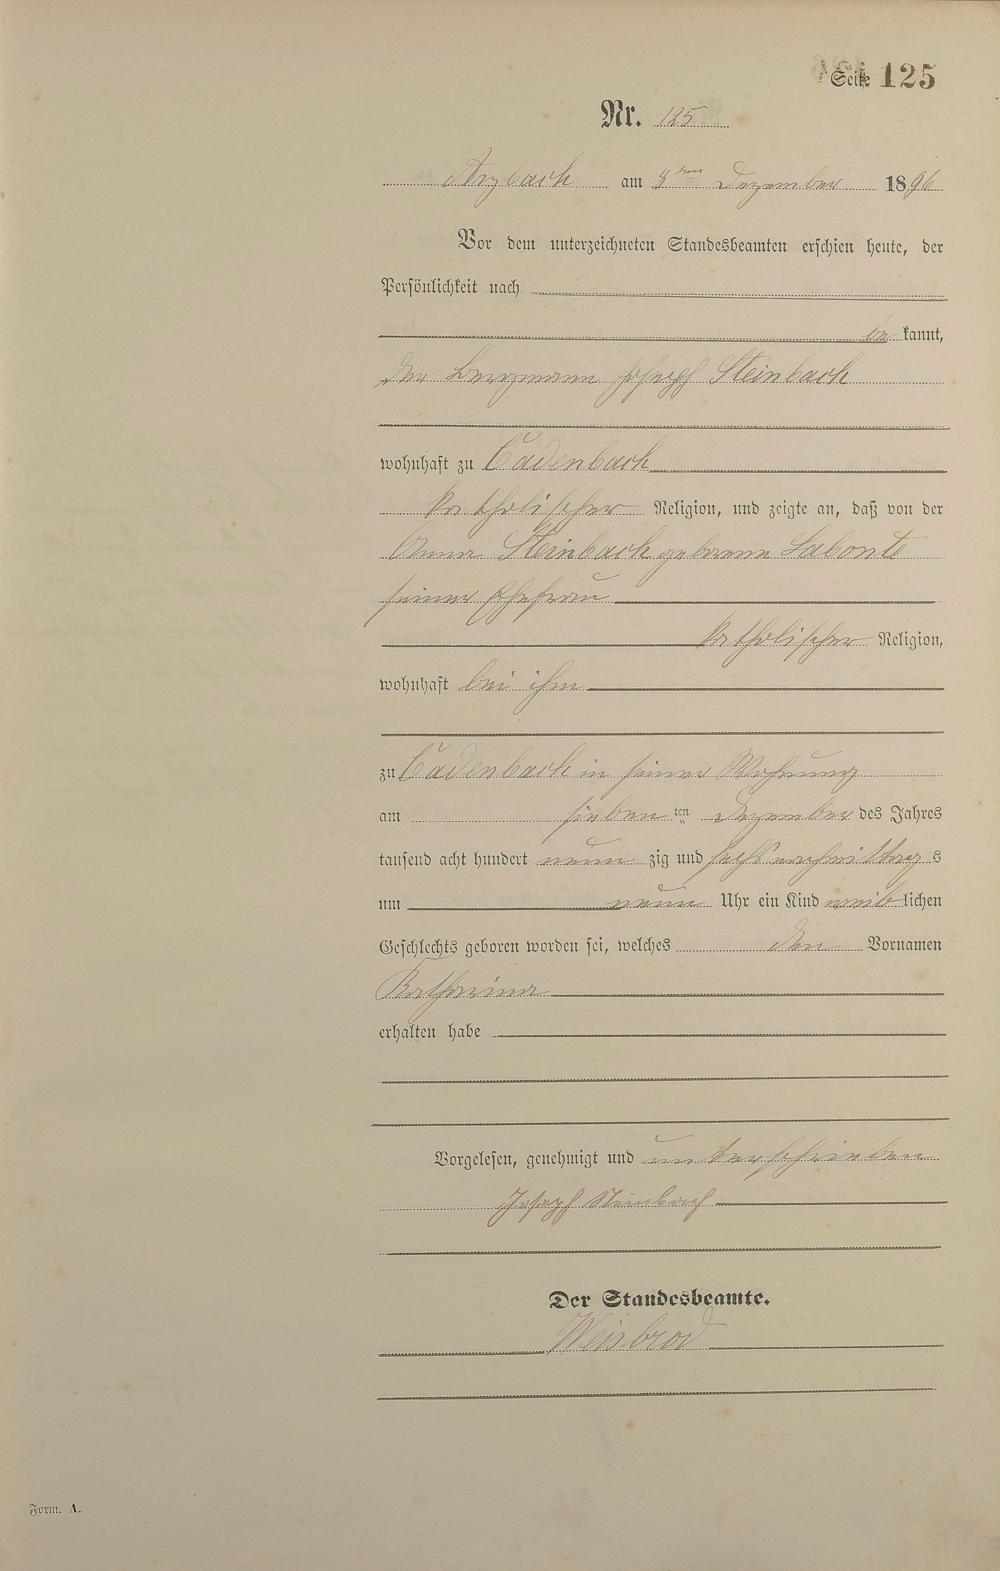 Seite 125
Nr. 125
Arzbach am 8ten Dezember 1896
Vor dem unterzeichneten Standesbeamten erschien heute, der
Persönlichkeit nach
be kannt,
der Bergmann Joseph Steinbach
wohnhaft zu Cadenbach
katholischer Religion, und zeigte an, daß von der
Anna Steinbach geborenen Labonte
seiner Ehefrau
katholischer Religion,
wohnhaft bei ihm
zu Cadenbach in seiner Wohnung
am sieben ten Dezember des Jahres
tausend acht hundert neun zig und sechs nachmittag s
um neun Uhr ein Kind weib lichen
Geschlechts geboren worden sei, welches den Vornamen
Katharina
erhalten habe
Vorgelesen, genehmigt und unterschrieben
Joseph Steinbach
Der Standesbeamte.
Weisbrod
Form. A.